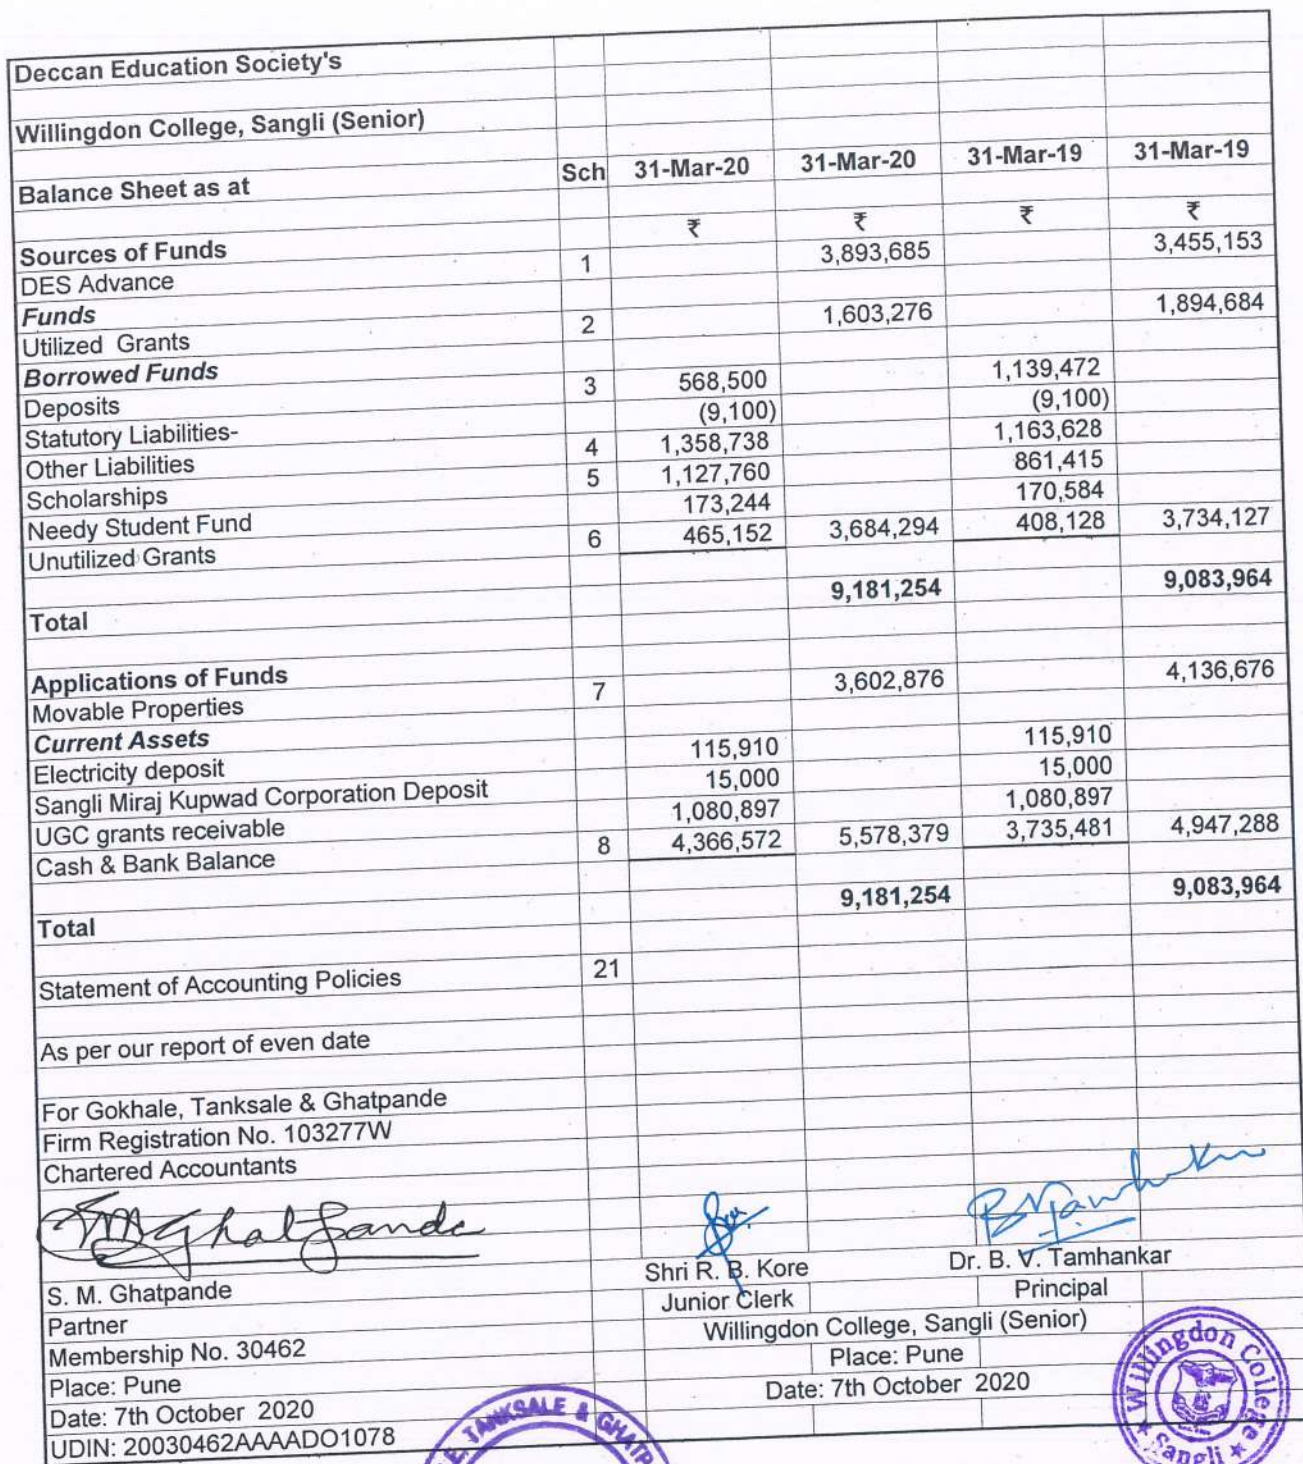 Deccan Education Society's
Willingdon College, Sangli (Senior)
Balance Sheet as at Sch 31-Mar-20 31-Mar-20 31-Mar-19 31-Mar-19
₹ ₹ ₹ ₹
Sources of Funds
DES Advance 1 3,893,685 3,455,153
Funds
Utilized Grants 2 1,603,276 1,894,684
Borrowed Funds
Deposits 3 568,500 1,139,472
Statutory Liabilities- (9,100) (9,100)
Other Liabilities 4 1,358,738 1,163,628
Scholarships 5 1,127,760 861,415
Needy Student Fund 173,244 170,584
Unutilized Grants 6 465,152 3,684,294 408,128 3,734,127
Total 9,181,254 9,083,964
Applications of Funds
Movable Properties 7 3,602,876 4,136,676
Current Assets
Electricity deposit 115,910 115,910
Sangli Miraj Kupwad Corporation Deposit 15,000 15,000
UGC grants receivable 1,080,897 1,080,897
Cash & Bank Balance 8 4,366,572 5,578,379 3,735,481 4,947,288
Total 9,181,254 9,083,964
Statement of Accounting Policies 21
As per our report of even date
For Gokhale, Tanksale & Ghatpande
Firm Registration No. 103277W
Chartered Accountants
SMGhatpande
S. M. Ghatpande Shri R. B. Kore Dr. B. V. Tamhankar
Partner Junior Clerk Principal
Membership No. 30462 Willingdon College, Sangli (Senior)
Place: Pune Place: Pune
Date: 7th October 2020 Date: 7th October 2020
UDIN: 20030462AAAADO1078
TANKSALE &
Willingdon College
Sangli